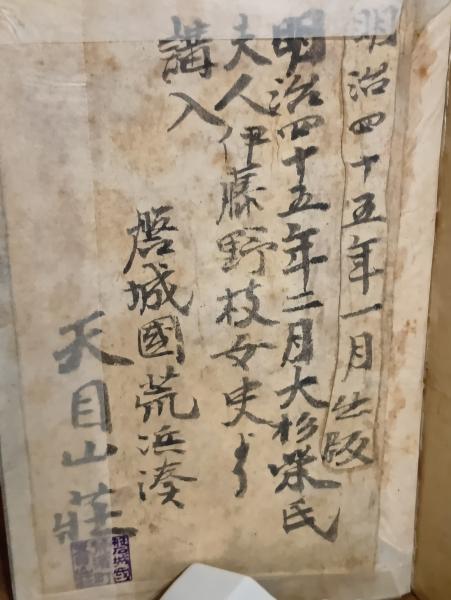 明治四十五年一月出版
明治四十五年二月大杉栄氏
夫人伊藤野枝女史より
講入
磐城國荒浜湊
天目山荘